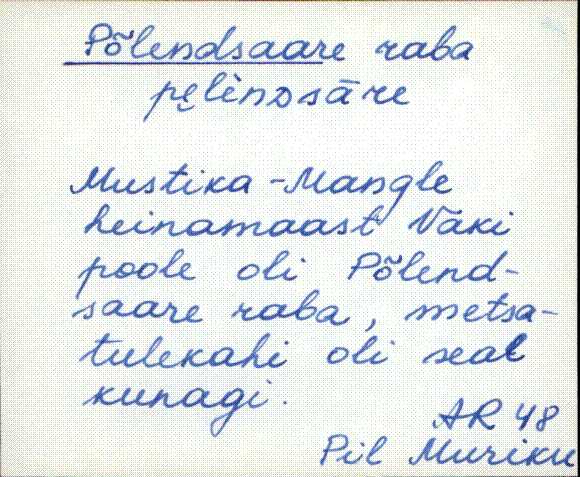 Põlendsaare raba
pęlènDsāre
Mustika-Mangle
heinamaast Väki
poole oli Põlend-
saare raba, metsa-
tulekahi oli seal
kunagi.
AR 48
Pil Muriku